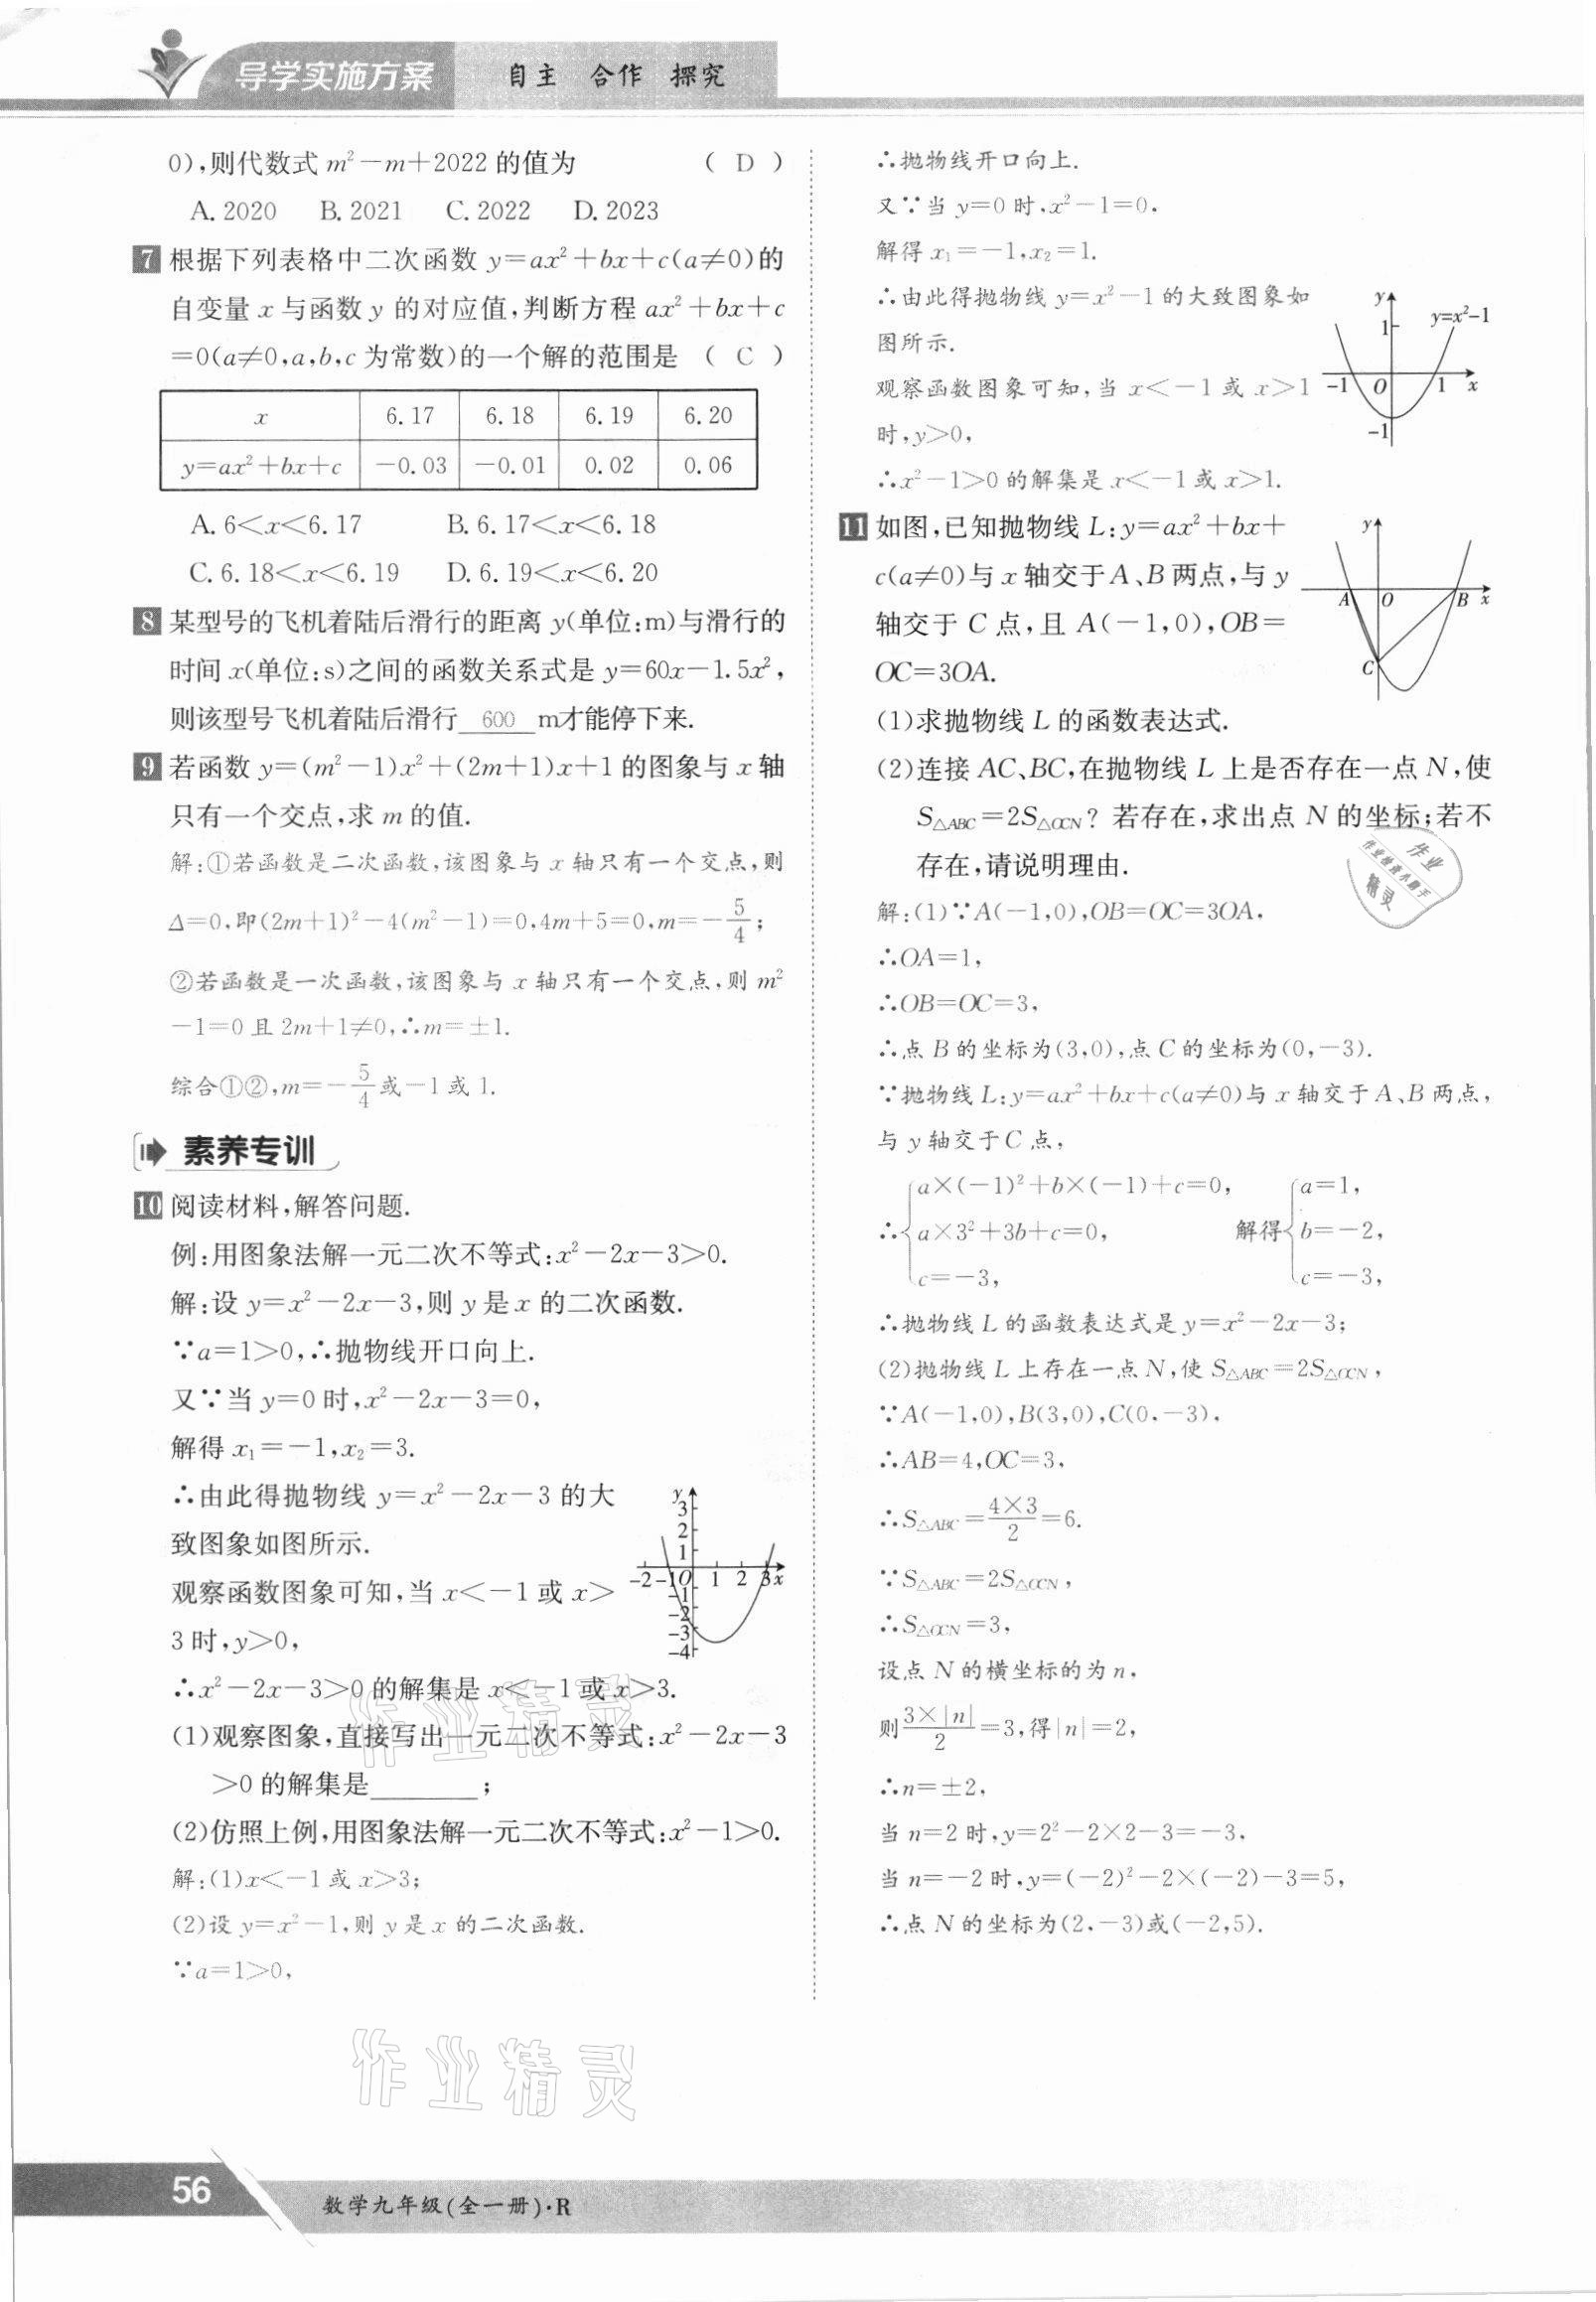 导学实施方案
自主 合作 探究
0),则代数式 m²-m+2022 的值为 ( D )
A. 2020 B. 2021 C. 2022 D. 2023
7 根据下列表格中二次函数 y=ax²+bx+c(a≠0)的
自变量 x 与函数 y 的对应值,判断方程 ax²+bx+c
=0(a≠0,a,b,c 为常数)的一个解的范围是 ( C )
x 6.17 6.18 6.19 6.20
y=ax²+bx+c -0.03 -0.01 0.02 0.06
A. 6<x<6.17 B. 6.17<x<6.18
C. 6.18<x<6.19 D. 6.19<x<6.20
8 某型号的飞机着陆后滑行的距离 y(单位:m)与滑行的
时间 x(单位:s)之间的函数关系式是 y=60x-1.5x²,
则该型号飞机着陆后滑行 600 m才能停下来.
9 若函数 y=(m²-1)x²+(2m+1)x+1 的图象与 x 轴
只有一个交点,求 m 的值.
解:①若函数是二次函数,该图象与 x 轴只有一个交点,则
Δ=0,即(2m+1)²-4(m²-1)=0,4m+5=0,m=-5/4;
②若函数是一次函数,该图象与 x 轴只有一个交点,则 m²
-1=0 且 2m+1≠0,∴m=±1.
综合①②,m=-5/4或-1 或 1.
素养专训
10 阅读材料,解答问题.
例:用图象法解一元二次不等式:x²-2x-3>0.
解:设 y=x²-2x-3,则 y 是 x 的二次函数.
∵a=1>0,∴抛物线开口向上.
又∵当 y=0 时,x²-2x-3=0,
解得 x₁=-1,x₂=3.
∴由此得抛物线 y=x²-2x-3 的大
致图象如图所示.
观察函数图象可知,当 x<-1 或 x>
3 时,y>0,
y
3
2
1
-2 -1 O 1 2 3 x
-1
-2
-3
-4
∴x²-2x-3>0 的解集是 x<-1 或 x>3.
(1)观察图象,直接写出一元二次不等式:x²-2x-3
>0 的解集是________;
(2)仿照上例,用图象法解一元二次不等式:x²-1>0.
解:(1)x<-1 或 x>3;
(2)设 y=x²-1,则 y 是 x 的二次函数.
∵a=1>0,
∴抛物线开口向上.
又∵当 y=0 时,x²-1=0,
解得 x₁=-1,x₂=1.
∴由此得抛物线 y=x²-1 的大致图象如
图所示.
观察函数图象可知,当 x<-1 或 x>1
时,y>0,
y
1
y=x²-1
-1 O 1 x
-1
∴x²-1>0 的解集是 x<-1 或 x>1.
11 如图,已知抛物线 L:y=ax²+bx+
c(a≠0)与 x 轴交于A、B 两点,与 y
轴交于 C 点,且 A(-1,0),OB=
OC=3OA.
y
A O B x
C
(1)求抛物线 L 的函数表达式.
(2)连接 AC、BC,在抛物线 L 上是否存在一点 N,使
S△ABC=2S△OCN? 若存在,求出点 N 的坐标;若不
存在,请说明理由.
解:(1)∵A(-1,0),OB=OC=3OA,
∴OA=1,
∴OB=OC=3,
∴点 B 的坐标为(3,0),点 C 的坐标为(0,-3).
∵抛物线 L:y=ax²+bx+c(a≠0)与 x 轴交于 A、B 两点,
与 y 轴交于 C 点,
∴{a×(-1)²+b×(-1)+c=0, a×3²+3b+c=0, c=-3, 解得{a=1, b=-2, c=-3,
∴抛物线 L 的函数表达式是 y=x²-2x-3;
(2)抛物线 L 上存在一点 N,使 S△ABC=2S△OCN,
∵A(-1,0),B(3,0),C(0,-3),
∴AB=4,OC=3,
∴S△ABC=4×3/2=6.
∵S△ABC=2S△OCN,
∴S△OCN=3,
设点 N 的横坐标的为 n,
则3×|n|/2=3,得|n|=2,
∴n=±2,
当 n=2 时,y=2²-2×2-3=-3,
当 n=-2 时,y=(-2)²-2×(-2)-3=5,
∴点 N 的坐标为(2,-3)或(-2,5).
作业
作业检查小助手
精灵
作业精灵
作业精灵
56
数学九年级(全一册)·R